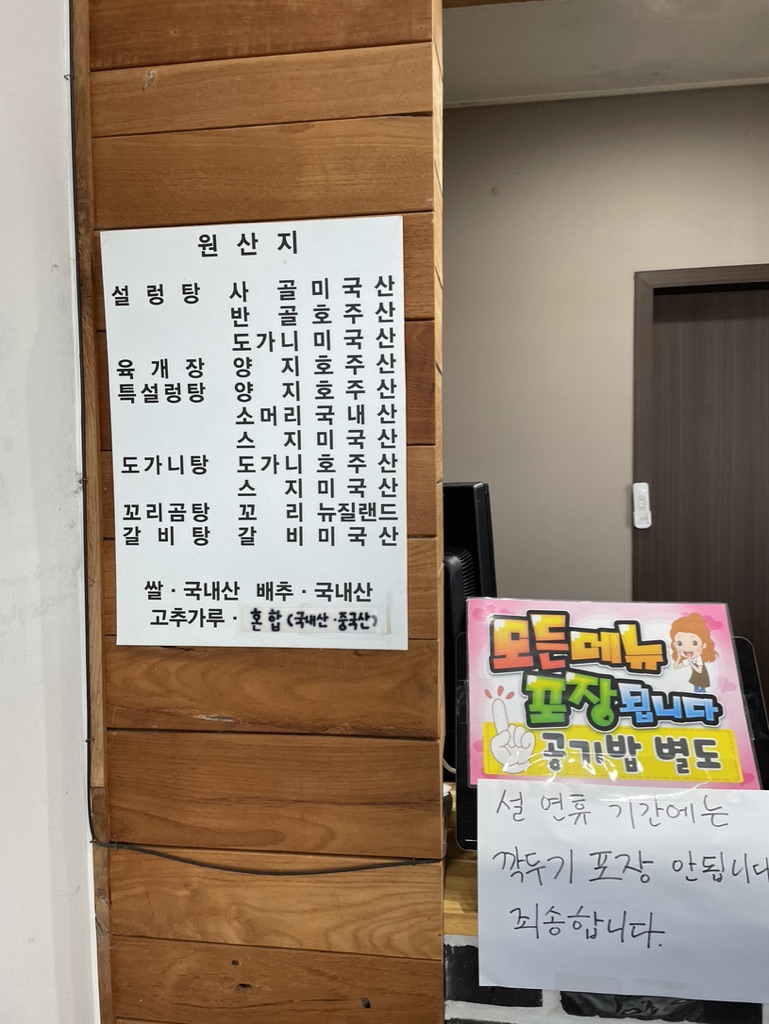 원산지
설렁탕 사골 미국산
반골 호주산
도가니 미국산
육개장 양지 호주산
특설렁탕 양지 호주산
소머리 국내산
스지 미국산
도가니탕 도가니 호주산
스지 미국산
꼬리곰탕 꼬리 뉴질랜드
갈비탕 갈비 미국산
쌀·국내산 배추·국내산
고추가루·혼합(국내산·중국산)
모든메뉴
포장됩니다
공기밥 별도
설 연휴 기간에는
깍두기 포장 안됩니다
죄송합니다.